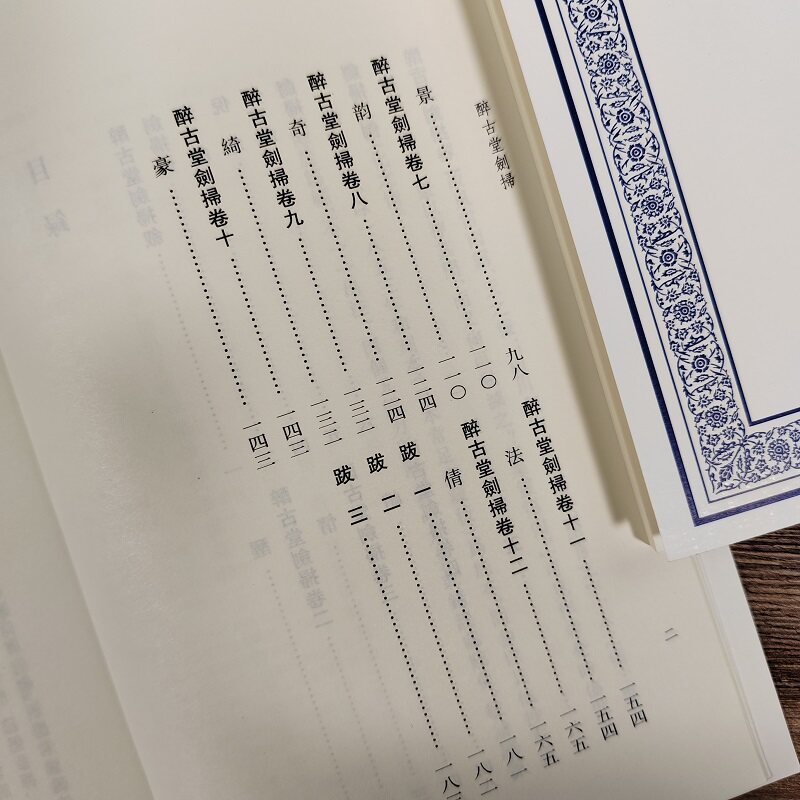 醉古堂劍掃
景……九八
醉古堂劍掃卷七……一一〇
韵……一一〇
醉古堂劍掃卷八……一二四
奇……一二四
醉古堂劍掃卷九……一三二
綺……一三二
醉古堂劍掃卷十……一四三
豪……一四三
醉古堂劍掃卷十一……一五四
法……一五四
醉古堂劍掃卷十二……一六五
倩……一六五
跋一……一八一
跋二……一八二
跋三……一八
二